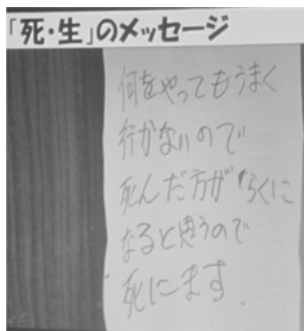 「死・生」のメッセージ
何をやってもうまく
行かないので
死んだ方がらくに
なると思うので
死にます.